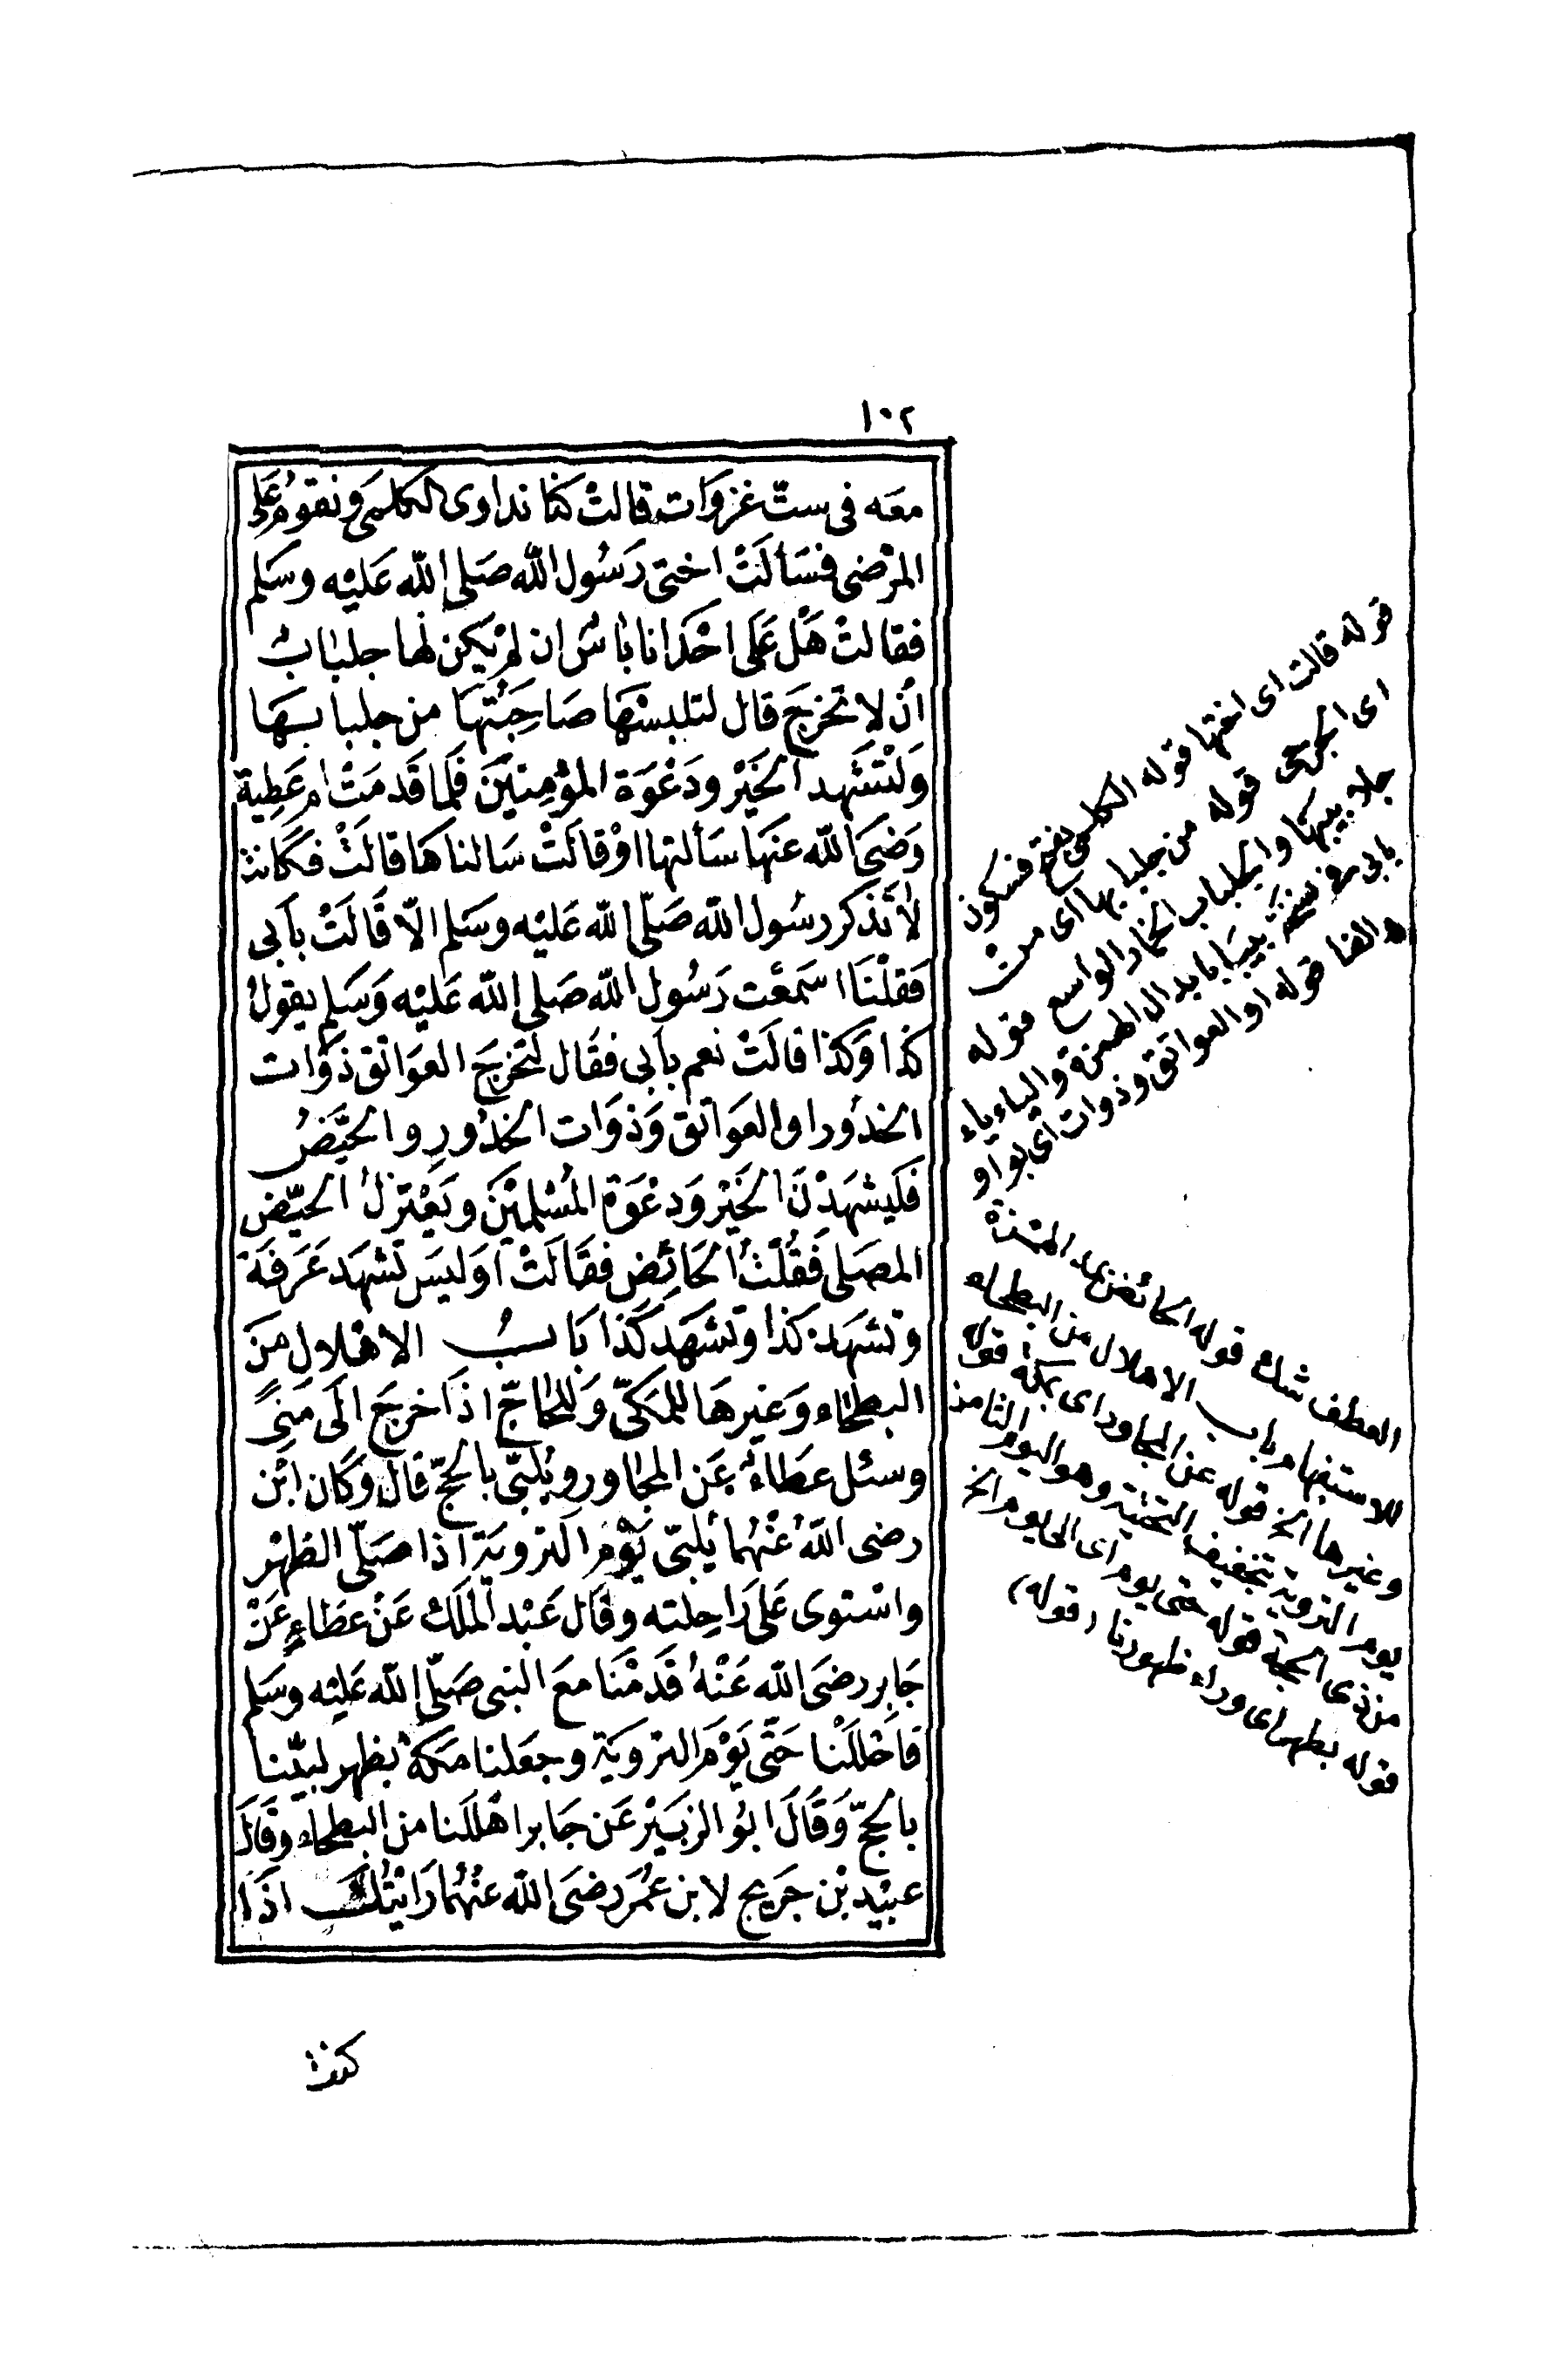 ١٠٢
معَه فى ستّ غزوَات قالتْ كنّا نداوى الكلمَى ونقومُ عَلَى
المرْضى فسَألَتْ اختى رَسُول اللّه صَلى اللّه عَليْه وسَلم
فقالتْ هَلْ عَلَى احْدَانا بَاسٌ ان لم يَكن لهَا جلبَابٌ
أن لا تخرجَ قال لتلبسْهَا صَاحِبَتُهَا من جلبابهَا
وَلْتشَهد الخَيْر ودَعْوَة المؤْمِنِيْنَ فَلما قَدمَتْ ام عَطِية
رَضىَ اللّه عنهَا سَألتها اوْ قالَتْ سَالناهَا قالَتْ فكَانت
لا تَذكر رسُول اللّه صَلّى اللّه عَليْه وسَلم الّا قَالَتْ بأبى
فَقلْنَا اسَمعْت رَسُول اللّه صَلى اللّه عَليْه وَسَلم يقولُ
كذا وَكذا قالَتْ نعم بأبى فقَال لتخرجَ العوَاتق ذوَات
الخدُور او العوَاتق وَذوَات الخدُورِ والحيَّضُ
فَليشهَدْنَ الخَيْر وَدعْوَة المُسْلمِيْنَ ويَعْتزلُ الحيّض
المصَلى فَقُلْتُ الحَائِض فقَالَتْ اوَليسَ تشهَد عَرَفَة
وتشهَد كذا وتشهَد كَذا بَابُ الاهْلالِ منَ
البطحَاء وَغيرهَا للمَكىّ وَللحَاجّ اذَا خرجَ الَى مَنِىً
وسئل عطَاءٌ عَن المجَاور ويُلَبّى بالحجّ قال وَكان ابْن
رضى اللّهُ عنْهُما يُلبّى يَوْمَ التروِيَة اذا صَلّى الظهْر
واسْتوى عَلى رَاحِلته وقال عَبْد الملك عَنْ عطاءٍ عَنْ
جَابر رضىَ اللّه عَنْهُ قَدمْنَا معَ النبى صَلّى اللّه عَليْه وسَلم
فاحْلَلْنا حَتّى يَوْمَ التروِيَة وجعَلنا مَكةَ بظهر لبيّنا
بالحجّ وَقَالَ ابُو الزبَيْر عَن جَابر اهْلَلنا من البطحَاء وقَالَ
عبَيْد بْن جرَيج لابن عُمَر رضىَ اللّه عنْهُما رَايْتكَ اذَا
كنت
قوله قالت اى اختها قوله الكلمى بفتح فسكون
اى الجرحى قوله من جلبابها اى من
جلابيبها والجلباب الخمار الواسع قوله
بابى وفى نسخة بيبا بابدال الهمزة والياء ياء
والفا قوله او العواتق وذوات اى بواو
العطف شك قوله الحائض بهاء المنذرة
للاستفهام باب الاهلال من البطحاء
وغيرها الخ قوله عن المجاور اى بمكة قوله
يوم التروية بتخفيف التحتية وهو اليوم الثامن
من ذى الحجة قوله حتى يوم اى الى يوم الخ
قوله بظهر اى وراء ظهورنا (قوله)